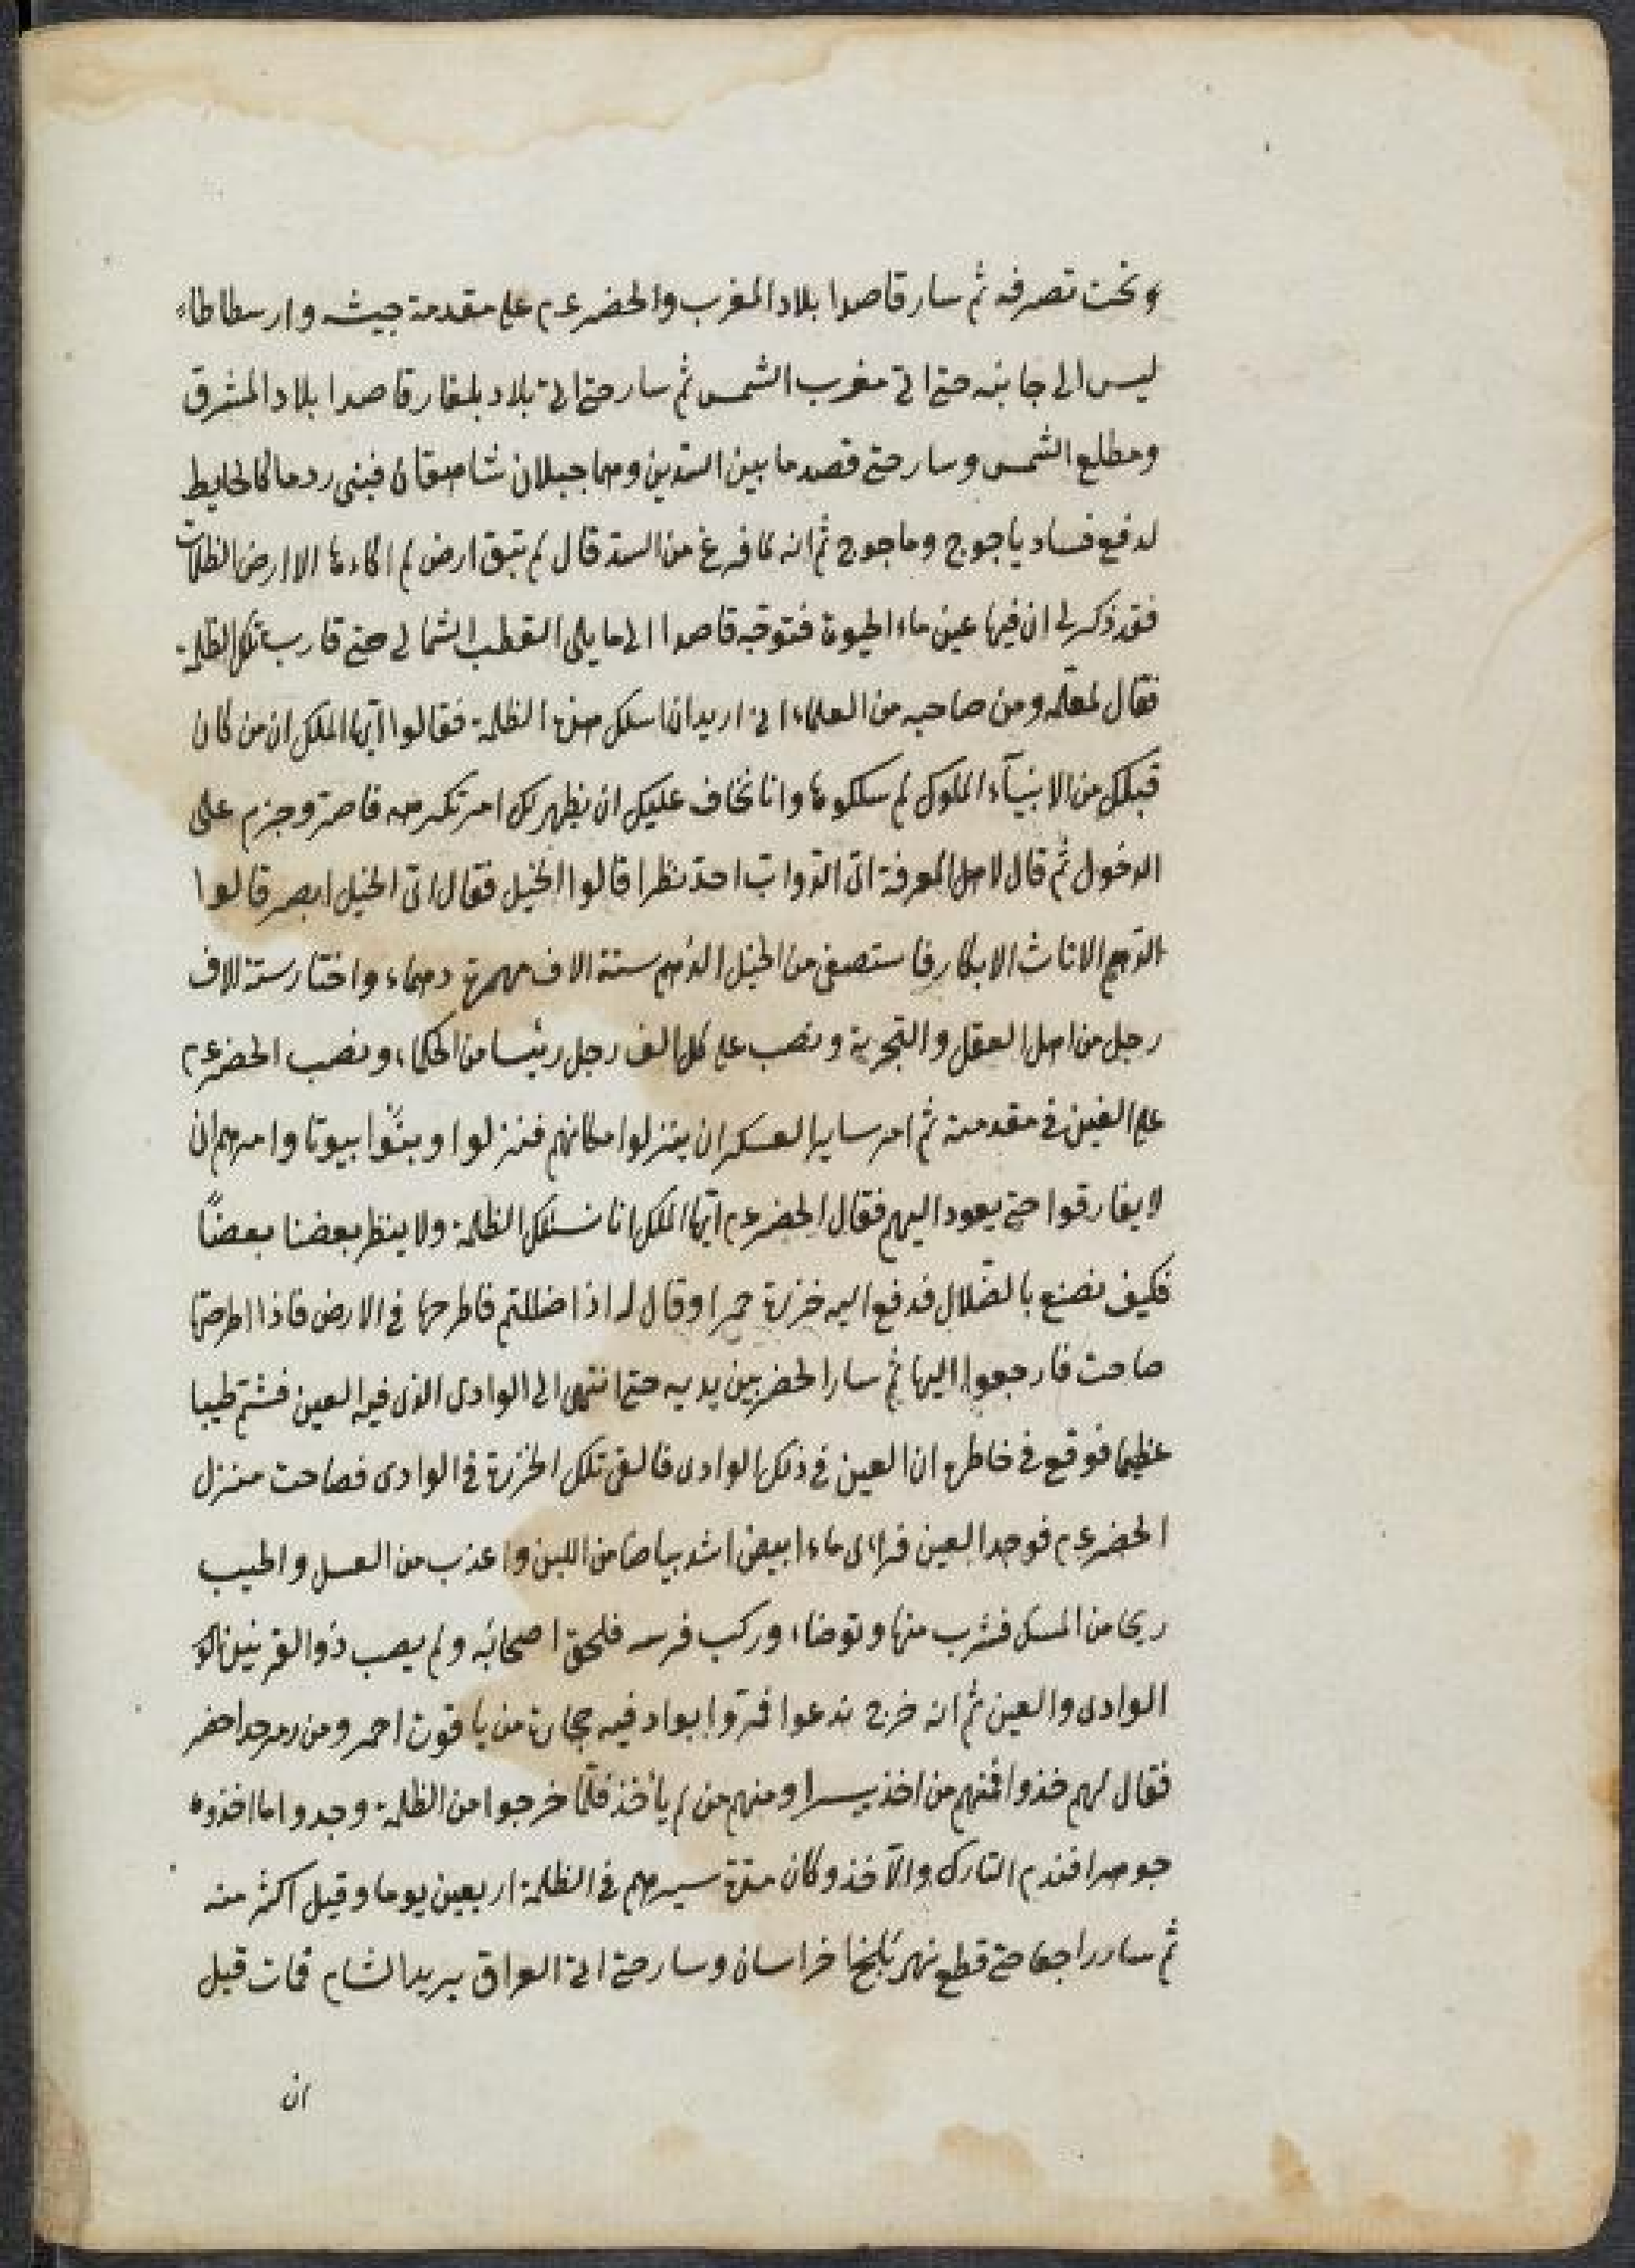 وتحت تصرفه ثم سار قاصدا بلاد المغرب والخضر عم على مقدمة جيشه وارسطاطا
ليس الى جانبه حتى اتى مغرب الشمس ثم سار حتى اتى بلاد بلغار قاصدا بلاد المشرق
ومطلع الشمس وسار حتى قصد ما بين السدين وهما جبلان شاهقان فبنى ردما كالحايط
لدفع فساد ياجوج وماجوج ثم انه لما فرغ من السد قال لم تبق ارض لم اطاءها الا ارض الظلمات
فقد ذكر لى ان فيها عين ماء الحيوة فتوجه قاصدا الى ما يلى القطب الشمالى حتى قارب تلك الظلمة
فقال لمعلمه ومن صاحبه من العلماء انى اريد ان اسلك هذه الظلمة فقالوا ايها الملك ان من كان
قبلك من الانبيآء الملوك لم سلكوها وانا نخاف عليك ان يظهر لك امر تكرهه فاصر وجزم على
الدخول ثم قال لاهل المعرفة اى الدواب احد نظرا قالوا الخيل فقال اى الخيل ابصر قالوا
الدهم الاناث الابكار فاستصفى من الخيل الدهم ستة الاف مهمرة دهماء واختار ستة الاف
رجل من اهل العقل والتجربة ونصب على كل الف رجل رئيسا من الحكماء ونصب الخضر عم
على الفين فى مقدمته ثم امر ساير العسكر ان ينزلوا مكانهم فنزلوا وبنوا بيوتا وامرهم ان
لا يفارقوا حتى يعود اليهم فقال الخضر عم ايها الملك انا نسلك الظلمة ولا ينظر بعضنا بعضًا
فكيف نصنع بالضلال فدفع اليه خرزة حمرا وقال له اذا ضللتم فاطرحها فى الارض فاذا اطرحتها
صاحت فارجعوا اليها ثم سار الخضر بين يديه حتى انتهى الى الوادى الذى فيه العين فشتم طيبا
عظيما فوقع فى خاطره ان العين فى ذلك الوادى فالقى تلك الخرزة فى الوادى فصاحت منزل
الخضر عم فوجد العين فراى ماء ابيض اشد بياضا من اللبن واعذب من العسل واطيب
ريحا من المسك فشرب منها وتوضاء وركب فرسه فلحق اصحابه ولم يصب ذو القرنين ذلك
الوادى والعين ثم انه خرج ندعوا فمروا بواد فيه حجارة من ياقوت احمر ومن زمرد اخضر
فقال لهم خذوا فمنهم من اخذ يسيرا ومنهم من لم ياخذ فلما خرجوا من الظلمة وجدوا ما اخذوه
جوهرا فندم التارك والآخذ وكان مدة سيرهم فى الظلمة اربعين يوما وقيل اكثر منه
ثم سار راجعا حتى قطع نهر بلخا خراسان وسار حتى اتى العراق يريد الشام فمات قبل
ان